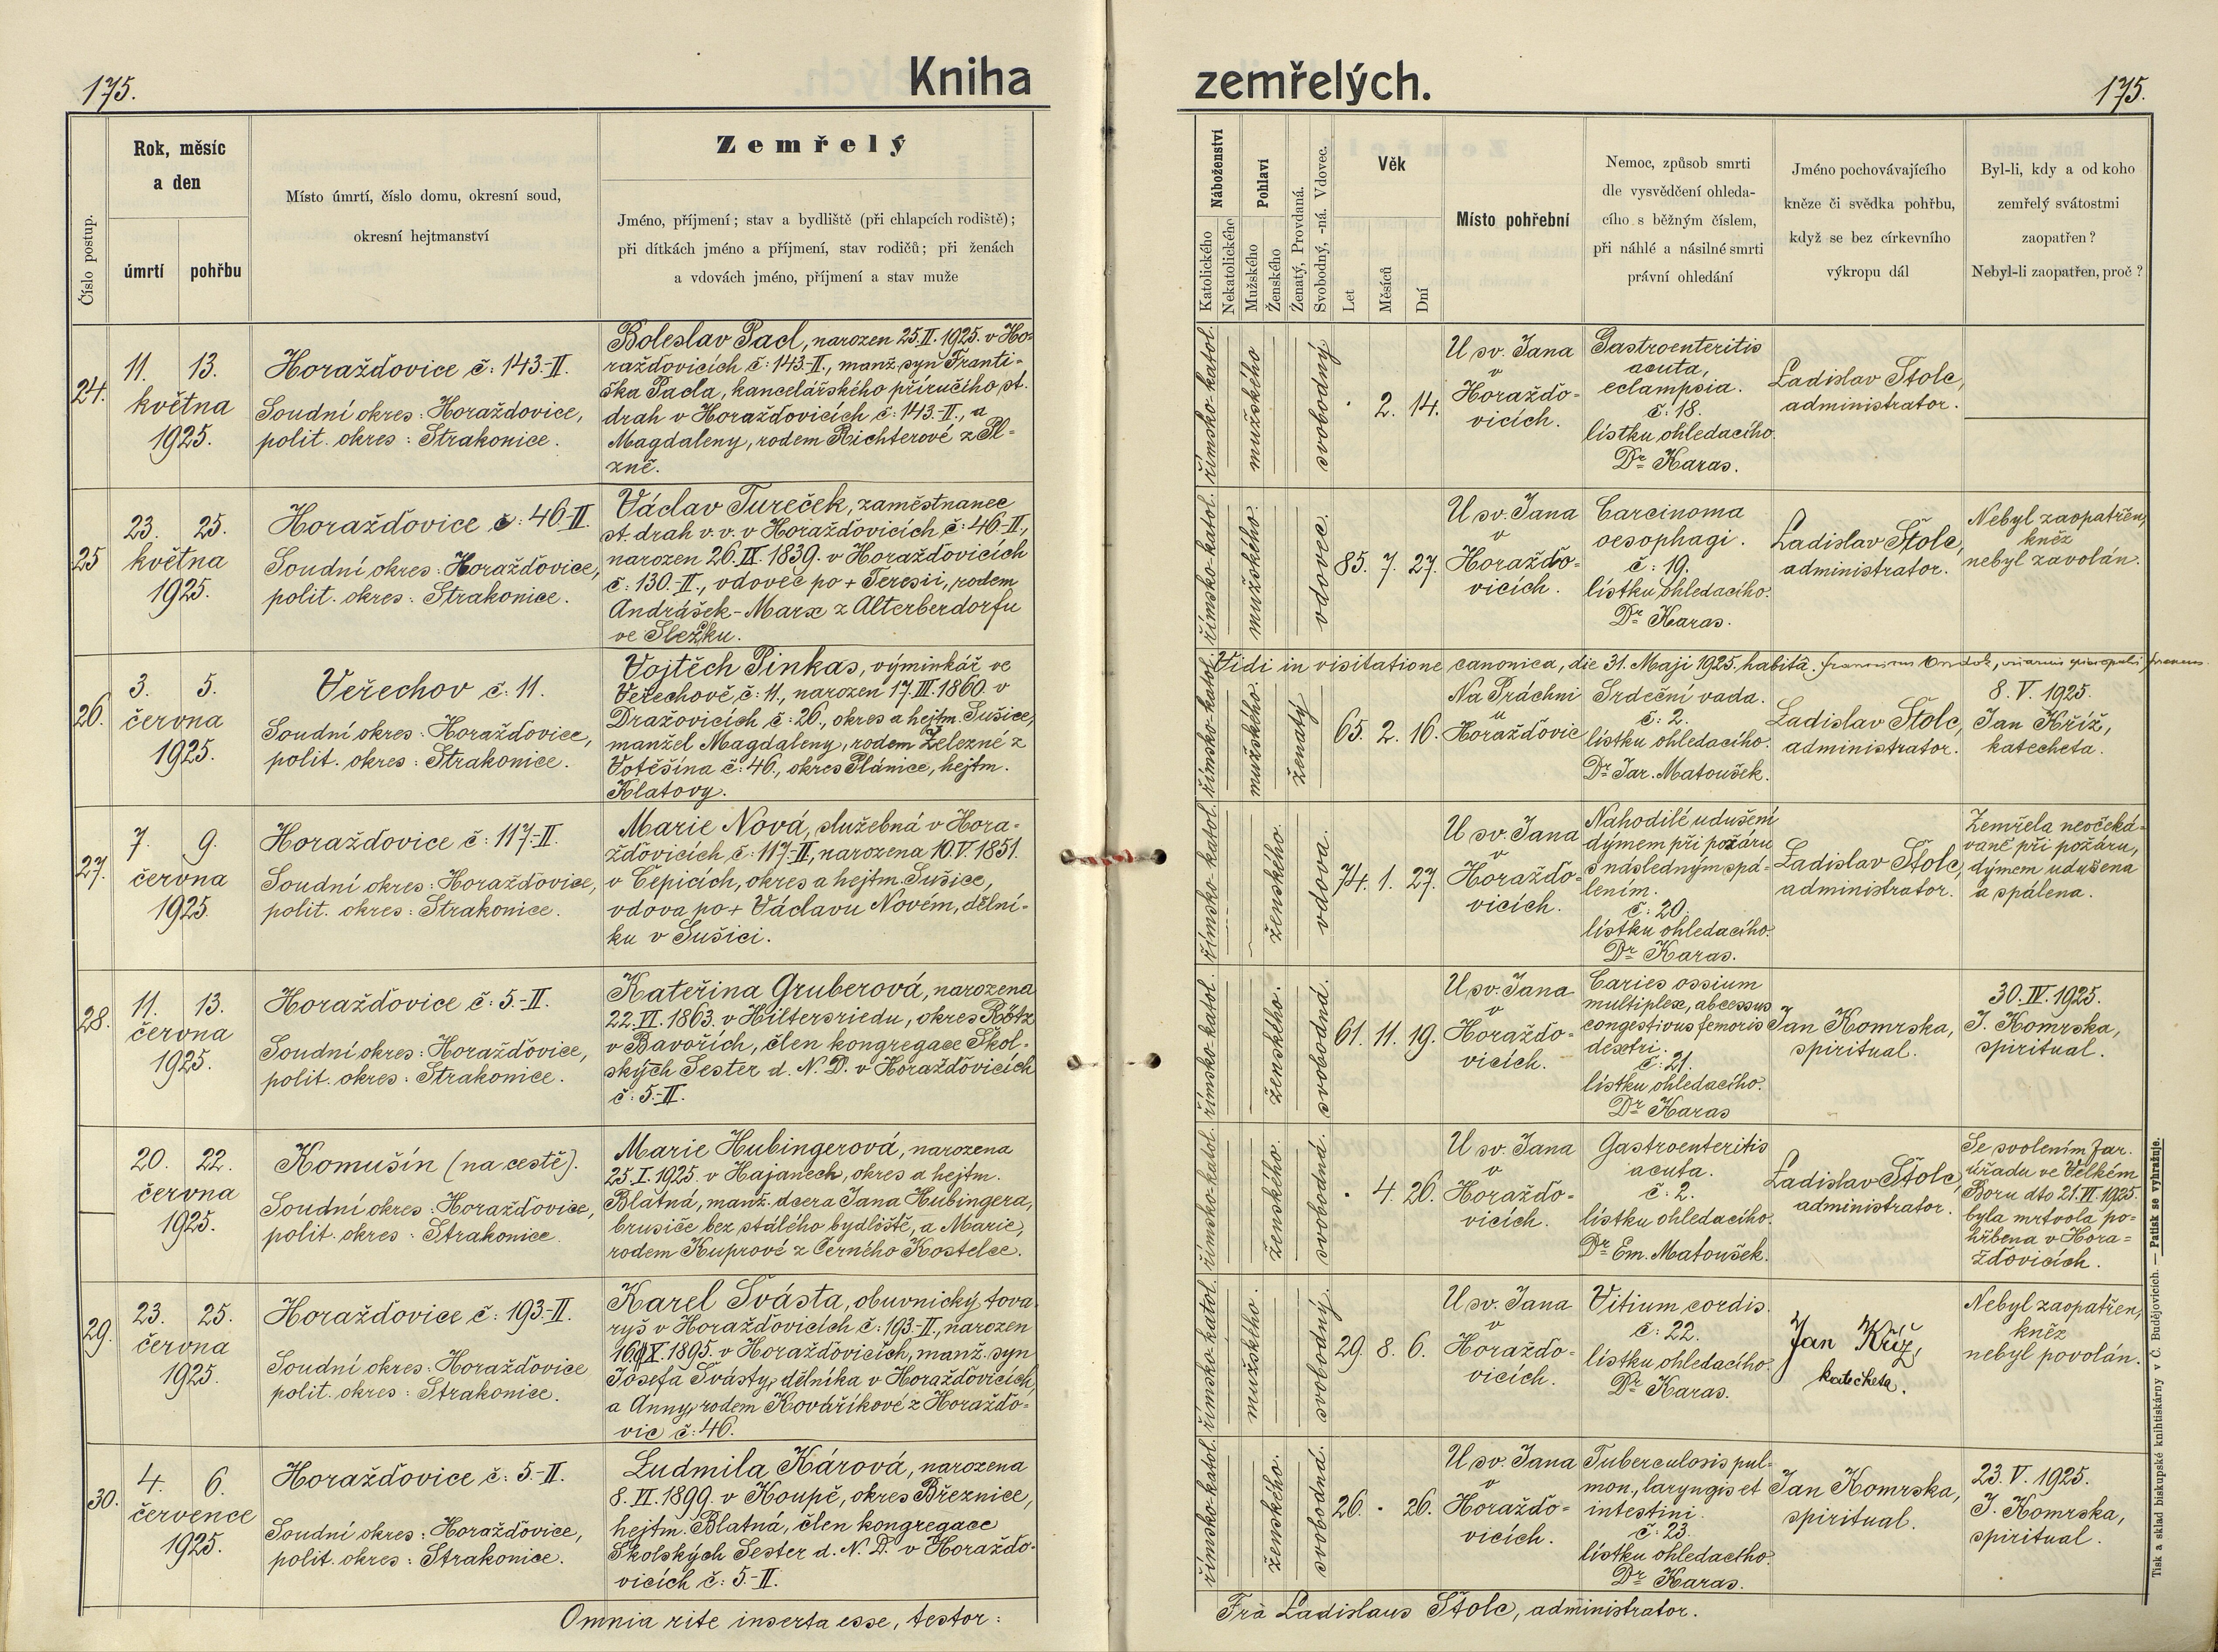 175.
Kniha
zemřelých.
175.
Číslo postup.
Rok, měsíc
a den
úmrtí
pohřbu
Místo úmrtí, číslo domu, okresní soud,
okresní hejtmanství
Zemřelý
Jméno, příjmení; stav a bydliště (při chlapcích rodiště);
při dítkách jméno a příjmení, stav rodičů; při ženách
a vdovách jméno, příjmení a stav muže
Náboženství
Katolického
Nekatolického
Pohlaví
Mužského
Ženského
Ženatý, Provdaná.
Svobodný, -ná. Vdovec.
Věk
Let
Měsíců
Dní
Místo pohřební
Nemoc, způsob smrti
dle vysvědčení ohleda-
cího s běžným číslem,
při náhlé a násilné smrti
právní ohledání
Jméno pochovávajícího
kněze či svědka pohřbu,
když se bez církevního
výkropu dál
Byl-li, kdy a od koho
zemřelý svátostmi
zaopatřen?
Nebyl-li zaopatřen, proč?
24.
11. 13.
května
1925.
Horažďovice č: 143-II.
Soudní okres: Horažďovice,
polit. okres: Strakonice.
Boleslav Pacl, narozen 25.II.1925. v Ho-
ražďovicích č: 143-II., manž. syn Franti-
ška Pacla, kancelářského příručího st.
drah v Horažďovicích č: 143-II., a
Magdaleny, rodem Richterové z Pl-
zně.
římsko-katol.
mužského
svobodný
· 2. 14.
U sv. Jana
v
Horažďo-
vicích.
Gastroenteritis
acuta,
eclampsia.
č: 18.
lístku ohledacího.
Dr Karas.
Ladislav Štolc,
administrator.
25
23. 25.
května
1925.
Horažďovice č: 46-II.
Soudní okres: Horažďovice,
polit. okres: Strakonice.
Václav Tureček, zaměstnanec
st. drah v. v. v Horažďovicích, č: 46-II.,
narozen 26.IX.1839. v Horažďovicích
č: 130.-II., vdovec po + Teresii, rodem
Andrášek-Marx z Alterberdorfu
ve Slezku.
římsko-katol.
mužského.
vdovec.
85. 7. 27.
U sv. Jana
v
Horažďo-
vicích.
Carcinoma
oesophagi.
č: 19.
lístku ohledacího.
Dr Karas.
Ladislav Štolc,
administrator.
Nebyl zaopatřen,
kněz
nebyl zavolán.
Vidi in visitatione canonica, die 31. Maji 1925. habitâ.
26.
3. 5.
června
1925.
Veřechov č: 11.
Soudní okres: Horažďovice,
polit. okres: Strakonice.
Vojtěch Pinkas, výminkář ve
Veřechově, č: 11., narozen 17.III.1860. v
Dražovicích č: 26., okres a hejtm. Sušice,
manžel Magdaleny, rodem Železné z
Votěšína č: 46., okres Plánice, hejtm.
Klatovy.
římsko-katol.
mužského.
ženatý
65. 2. 16.
Na Práchni
u
Horažďovic
Srdeční vada.
č: 2.
lístku ohledacího.
Dr Jar. Matoušek.
Ladislav Štolc,
administrator.
8. V. 1925.
Jan Kříž,
katecheta.
27.
7. 9.
června
1925.
Horažďovice č: 117-II.
Soudní okres: Horažďovice,
polit. okres: Strakonice.
Marie Nová, služebná v Hora-
žďovicích, č: 117-II, narozena 10.V.1851.
v Čepicích, okres a hejtm. Sušice,
vdova po + Václavu Novém, dělní-
ku v Sušici.
římsko-katol.
ženského.
vdova.
74. 1. 27.
U sv. Jana
v
Horažďo-
vicích.
Nahodilé udušení
dýmem při požáru
s následným spá-
lením.
č: 20.
lístku ohledacího.
Dr Karas.
Ladislav Štolc,
administrator.
Zemřela neočeká-
vaně při požáru,
dýmem udušena
a spálena.
28.
11. 13.
června
1925.
Horažďovice č: 5.-II.
Soudní okres: Horažďovice,
polit. okres: Strakonice.
Kateřina Gruberová, narozena
22.VI.1863. v Hiltersriedu, okres Rötz
v Bavořích, člen kongregace Škol-
ských Sester d. N. D. v Horažďovicích
č: 5.-II.
římsko-katol.
ženského.
svobodná.
61. 11. 19.
U sv. Jana
v
Horažďo-
vicích.
Caries ossium
multiplex, abcessus
congestivus femoris
dextri.
č: 21.
lístku ohledacího.
Dr Karas
Jan Komrska,
spiritual.
30. IV. 1925.
J. Komrska,
spiritual.
20. 22.
června
1925.
Komušín (na cestě).
Soudní okres: Horažďovice,
polit. okres: Strakonice.
Marie Hubingerová, narozena
25.I.1925. v Hajanech, okres a hejtm.
Blatná, manž. dcera Jana Hubingera,
brusiče bez stálého bydliště, a Marie,
rodem Kuprové z Černého Kostelce.
římsko-katol.
ženského.
svobodná.
· 4. 26.
U sv. Jana
v
Horažďo-
vicích.
Gastroenteritis
acuta.
č: 2.
lístku ohledacího.
Dr Em. Matoušek.
Ladislav Štolc,
administrator.
Se svolením far.
úřadu ve Velkém
Boru dto 21.VI.1925.
byla mrtvola po-
hřbena v Hora-
žďovicích.
29.
23. 25.
června
1925.
Horažďovice č: 193-II.
Soudní okres: Horažďovice
polit. okres: Strakonice.
Karel Švásta, obuvnický tova-
ryš v Horažďovicích č: 193-II., narozen
X. 1895. v Horažďovicích, manž. syn
Josefa Švásty, dělníka v Horažďovicích,
a Anny, rodem Kováříkové z Horažďo-
vic č: 46.
římsko-katol.
mužského.
svobodný.
29. 8. 6.
U sv. Jana
v
Horažďo-
vicích.
Vitium cordis.
č: 22.
lístku ohledacího.
Dr Karas.
Jan Kříž,
katecheta.
Nebyl zaopatřen,
kněz
nebyl povolán.
30.
4. 6.
července
1925.
Horažďovice č: 5.-II.
Soudní okres: Horažďovice,
polit. okres: Strakonice.
Ludmila Kárová, narozena
8.VI.1899. v Koupě, okres Březnice,
hejtm. Blatná, člen kongregace
Školských Sester d. N. D. v Horažďo-
vicích č: 5.-II.
římsko-katol.
ženského.
svobodná.
26. · 26.
U sv. Jana
v
Horažďo-
vicích.
Tuberculosis pul-
mon., laryngis et
intestini.
č: 23.
lístku ohledacího.
Dr Karas.
Jan Komrska,
spiritual.
23. V. 1925.
J. Komrska,
spiritual.
Omnia rite inserta esse, testor:
Fra Ladislaus Štolc, administrator.
Tisk a sklad biskupské knihtiskárny v Č. Budějovicích. — Patisk se vyhražuje.